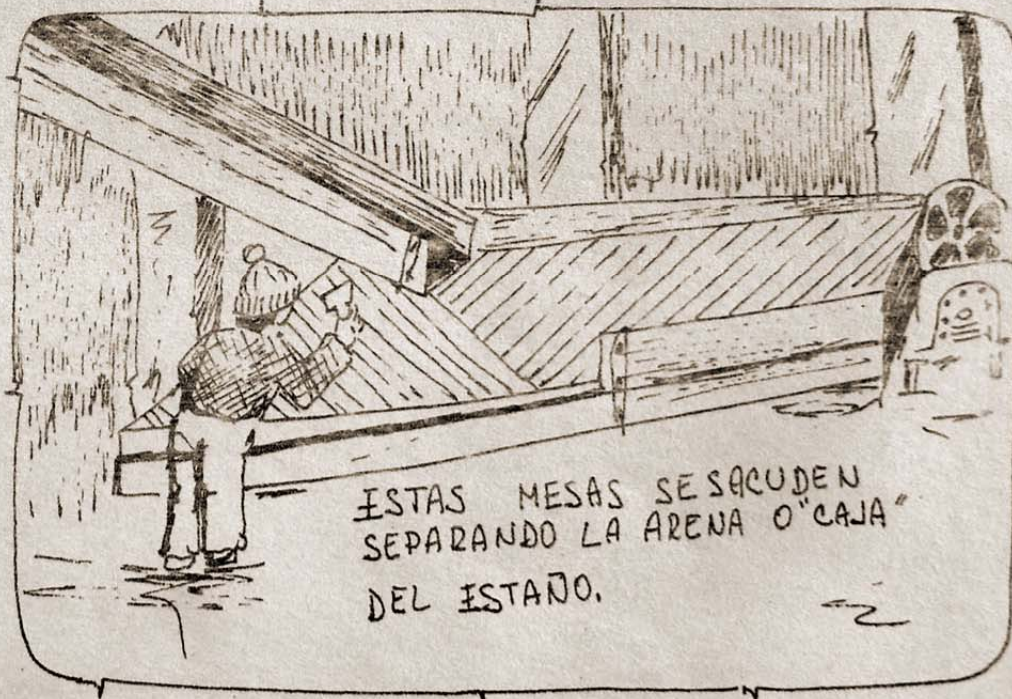 ESTAS MESAS SE SACUDEN
SEPARANDO LA ARENA O "CAJA"
DEL ESTAÑO.